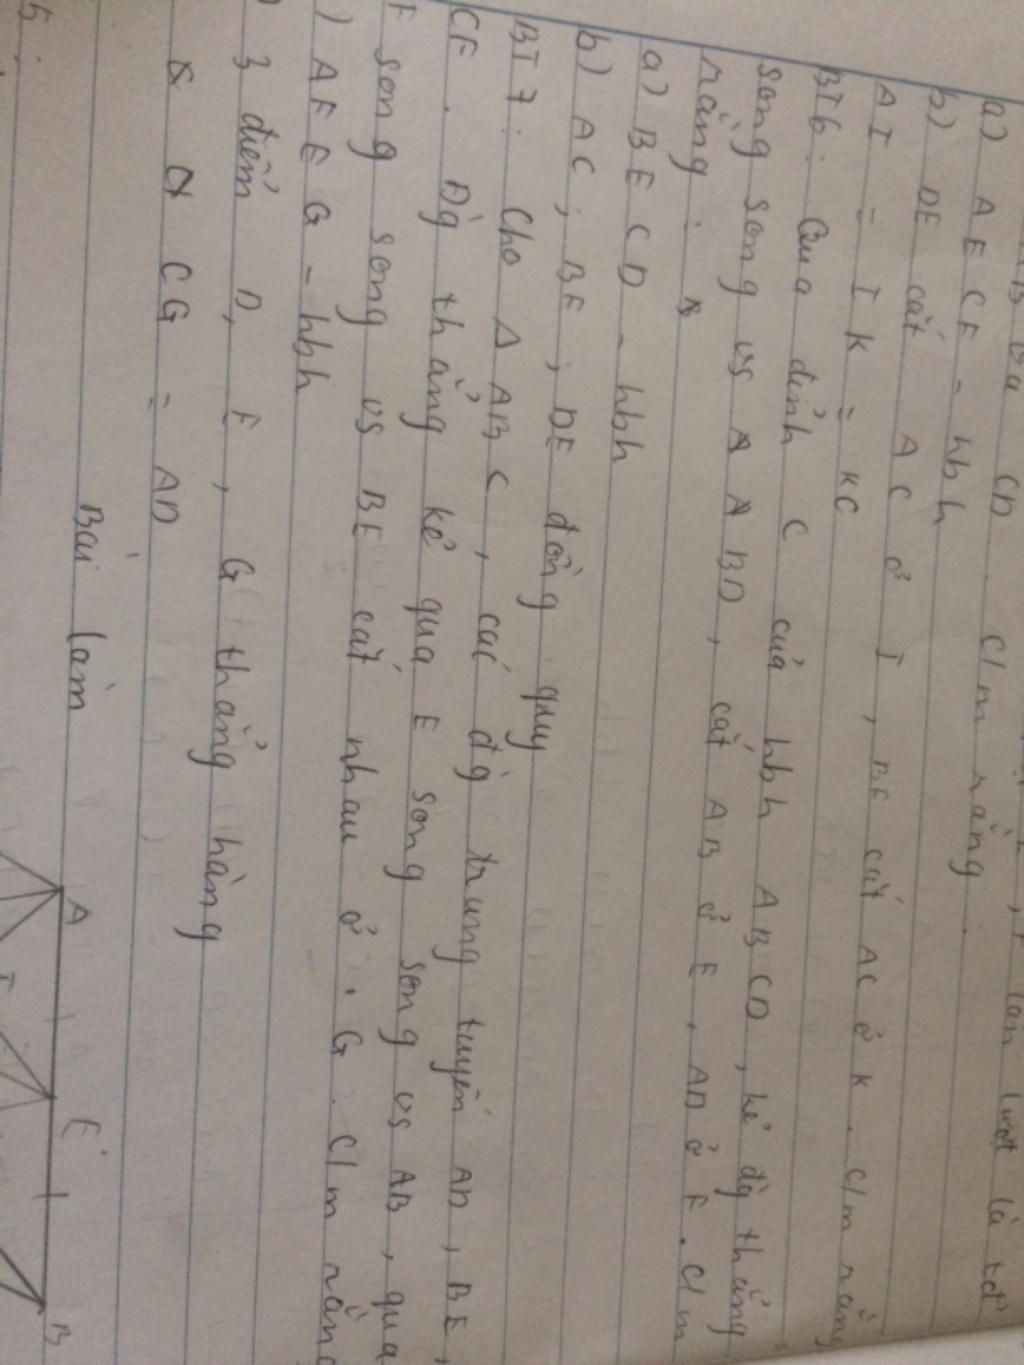 AB và CD. C/m rằng
a) AECF - hbh
b) DE cắt AC ở I, BF cắt AC ở K. C/m rằng
AI = IK = KC
BT6: Qua đỉnh C của hbh ABCD, kẻ đg thẳng
song song vs BD, cắt AB ở E, AD ở F. C/m
rằng:
a) BECD - hbh
b) AC; BF; DE đồng quy
BT7: Cho Δ ABC, các đg trung tuyến AD, BE,
CF. Đg thẳng kẻ qua E song song vs AB, qua
F song song vs BE cắt nhau ở G. C/m rằng
) AFEG - hbh
) 3 điểm D, E, G thẳng hàng
CG = AD
Bài làm
5:
A E B
I